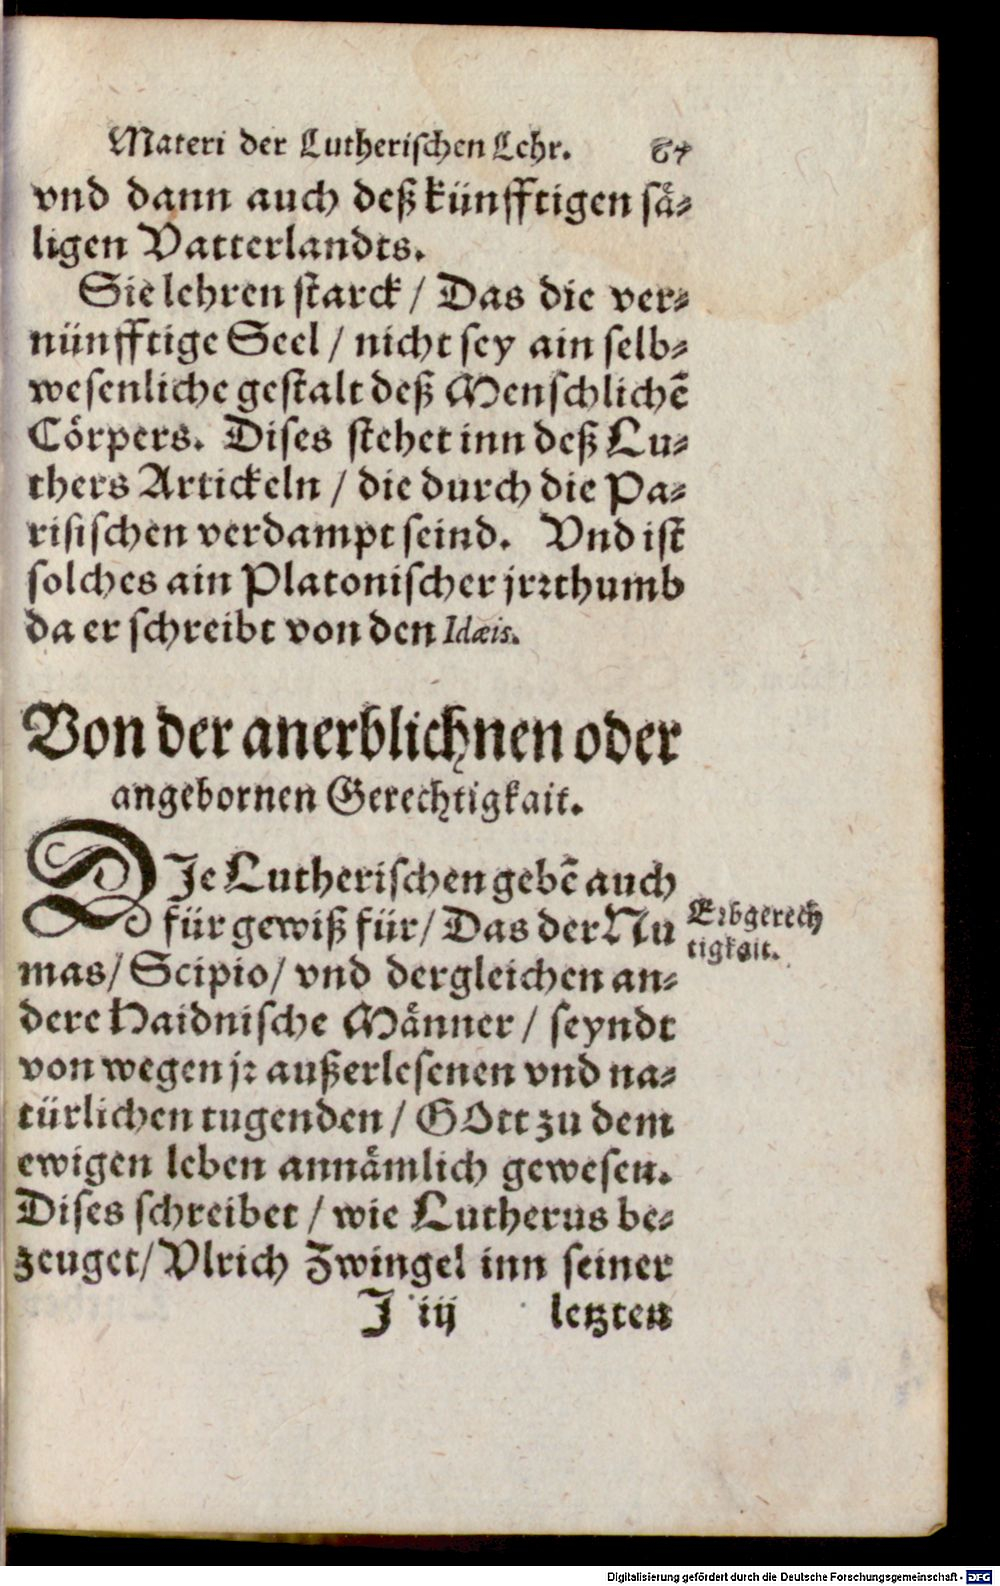 Materi der Lutherischen Lehr. 67
vnd dann auch deß künfftigen sä⸗
ligen Vatterlandts.
Sie lehren starck / Das die ver⸗
nünfftige Seel / nicht sey ain selb⸗
wesenliche gestalt deß Menschlichẽ
Cörpers. Dises stehet inn deß Lu⸗
thers Artickeln / die durch die Pa⸗
risischen verdampt seind. Vnd ist
solches ain Platonischer jrꝛthumb
da er schreibt von den Idæis.
Von der anerblichnen oder
angebornen Gerechtigkait.
DIe Lutherischen gebẽ auch
für gewiß für / Das der Nu
mas / Scipio / vnd dergleichen an⸗
dere Haidnische Männer / seyndt
von wegen jꝛ außerlesenen vnd na⸗
türlichen tugenden / GOtt zu dem
ewigen leben annämlich gewesen.
Dises schreibet / wie Lutherus be⸗
zeuget / Vlrich Zwingel inn seiner
Eꝛbgerech
tigkait.
J iij letzten
Digitalisierung gefördert durch die Deutsche Forschungsgemeinschaft - DFG